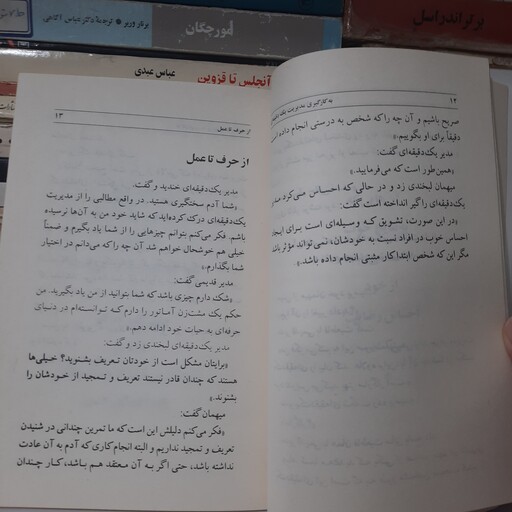 برتراند راسل
مورچگان
بردار وربر * ترجمهٔ دکتر عباس آگاهی
آنجلس تا قزوین
عباس عبدی
۱۲
به کارگیری مدیریت یک دقیقه‌ای
صریح باشیم و آن چه را که شخص به درستی انجام داده است
دقیقاً برای او بگوییم.»
مدیر یک‌دقیقه‌ای گفت:
«همین‌طور است که می‌فرمایید.»
میهمان لبخندی زد و در حالی که احساس می‌کرد مدیر
یک‌دقیقه‌ای را گیر انداخته است گفت:
«در این صورت، تشویق که وسیله‌ای است برای ایجاد
احساس خوب در افراد نسبت به خودشان، نمی‌تواند مؤثر باشد
مگر این که شخص ابتدا کار مثبتی انجام داده باشد.»
از حرف تا عمل
۱۳
از حرف تا عمل
مدیر یک‌دقیقه‌ای خندید و گفت:
«شما آدم سختگیری هستید. در واقع مطالبی را از مدیریت
یک‌دقیقه‌ای درک کرده‌اید که شاید خود من به آن‌ها نرسیده
باشم. فکر می‌کنم بتوانم چیزهایی را از شما یاد بگیرم و ضمناً
خیلی هم خوشحال خواهم شد آن چه را که می‌دانم در اختیار
شما بگذارم.»
مدیر قدیمی گفت:
«شک دارم چیزی باشد که شما بتوانید از من یاد بگیرید. من
حکم یک مشت‌زن آماتور را دارم که توانسته‌ام در دنیای
حرفه‌ای به حیات خود ادامه دهم.»
مدیر یک‌دقیقه‌ای لبخندی زد و گفت:
«برایتان مشکل است از خودتان تعریف بشنوید؟ خیلی‌ها
هستند که چندان قادر نیستند تعریف و تمجید از خودشان را
بشنوند.»
میهمان گفت:
«فکر می‌کنم دلیلش این است که ما تمرین چندانی در شنیدن
تعریف و تمجید نداریم و البته انجام کاری که آدم به آن عادت
نداشته باشد، حتی اگر به آن معتقد هم باشد، کار چندان